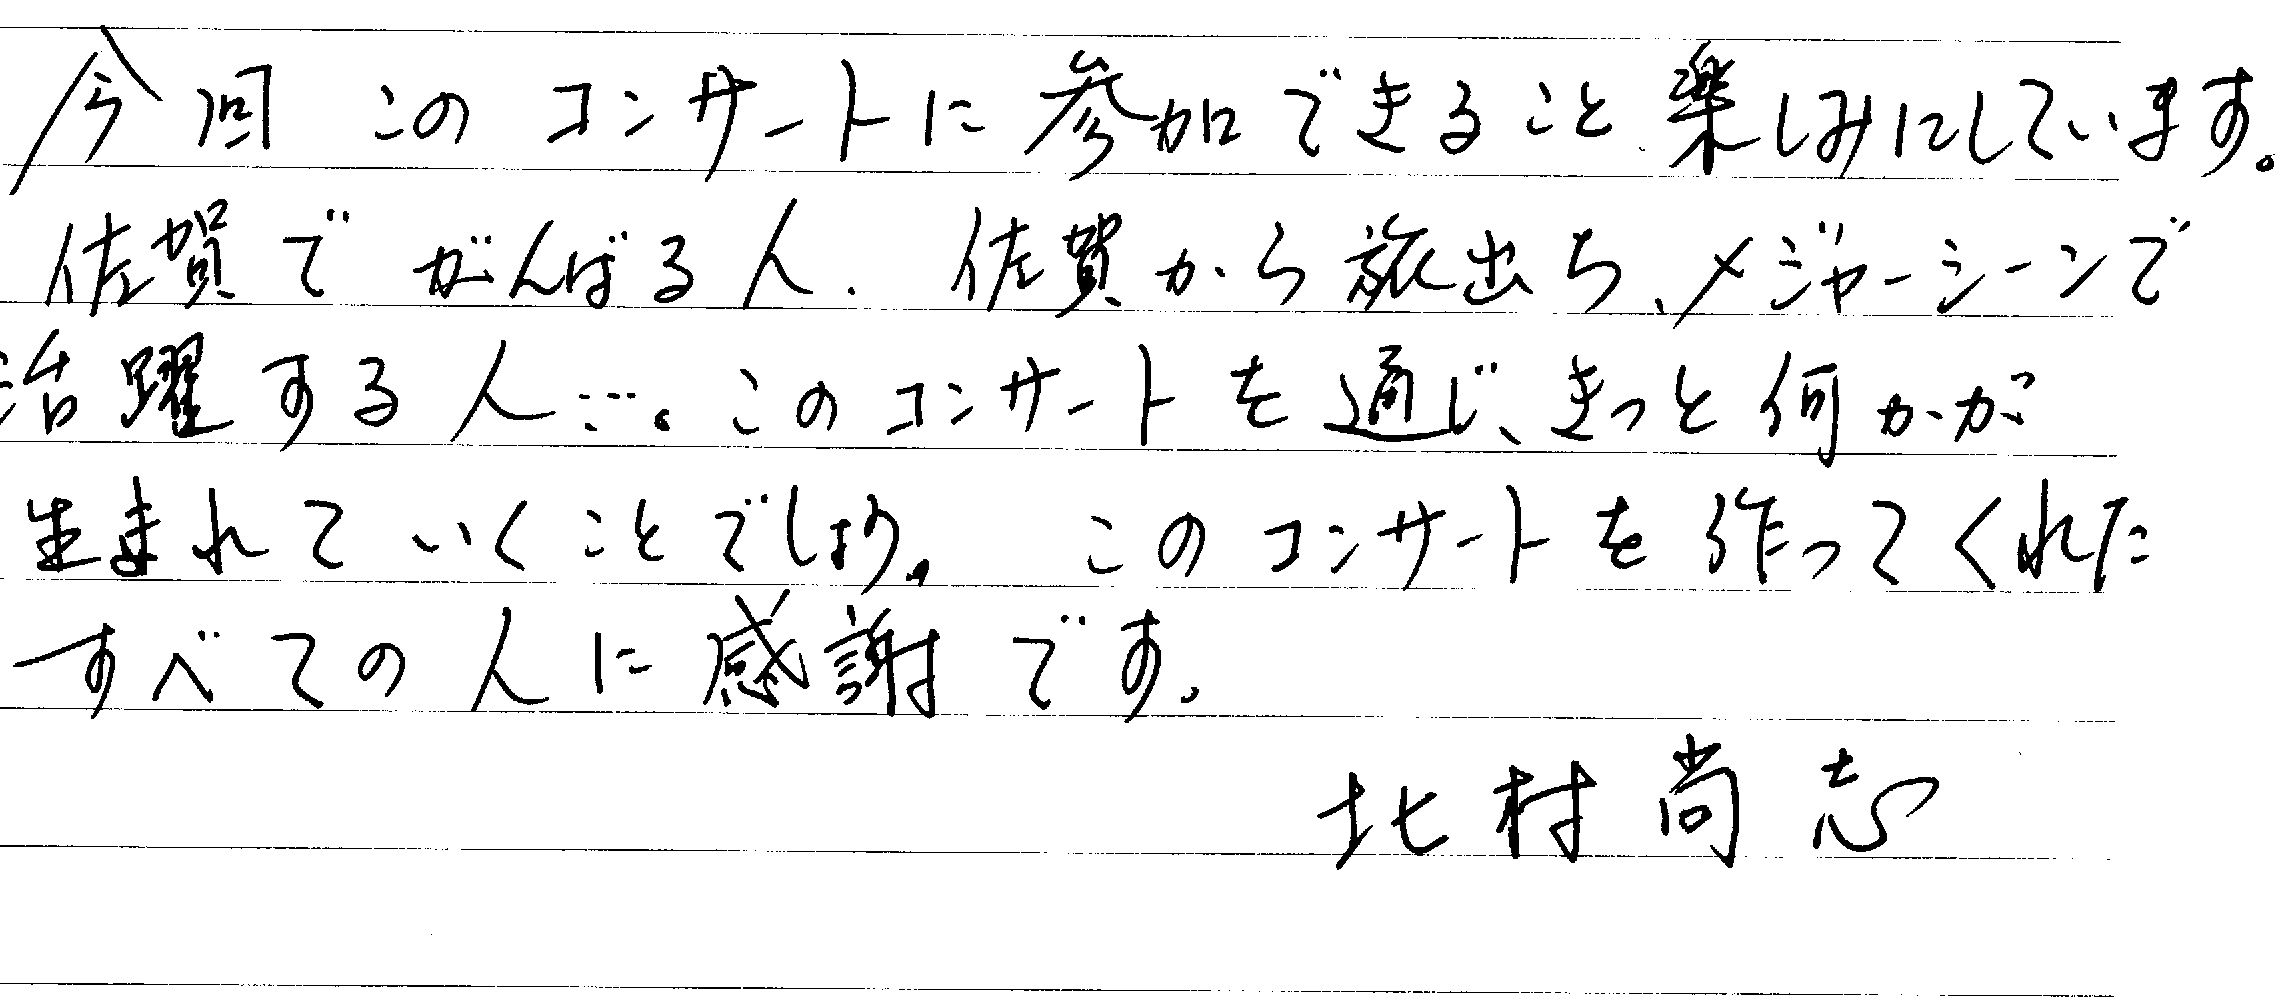 今回 このコンサートに参加できること、楽しみにしています。
佐賀でがんばる人、佐賀から旅出ち、メジャーシーンで
活躍する人…。このコンサートを通じ、きっと何かが
生まれていくことでしょう。このコンサートを作ってくれた
すべての人に感謝です。
北村尚志